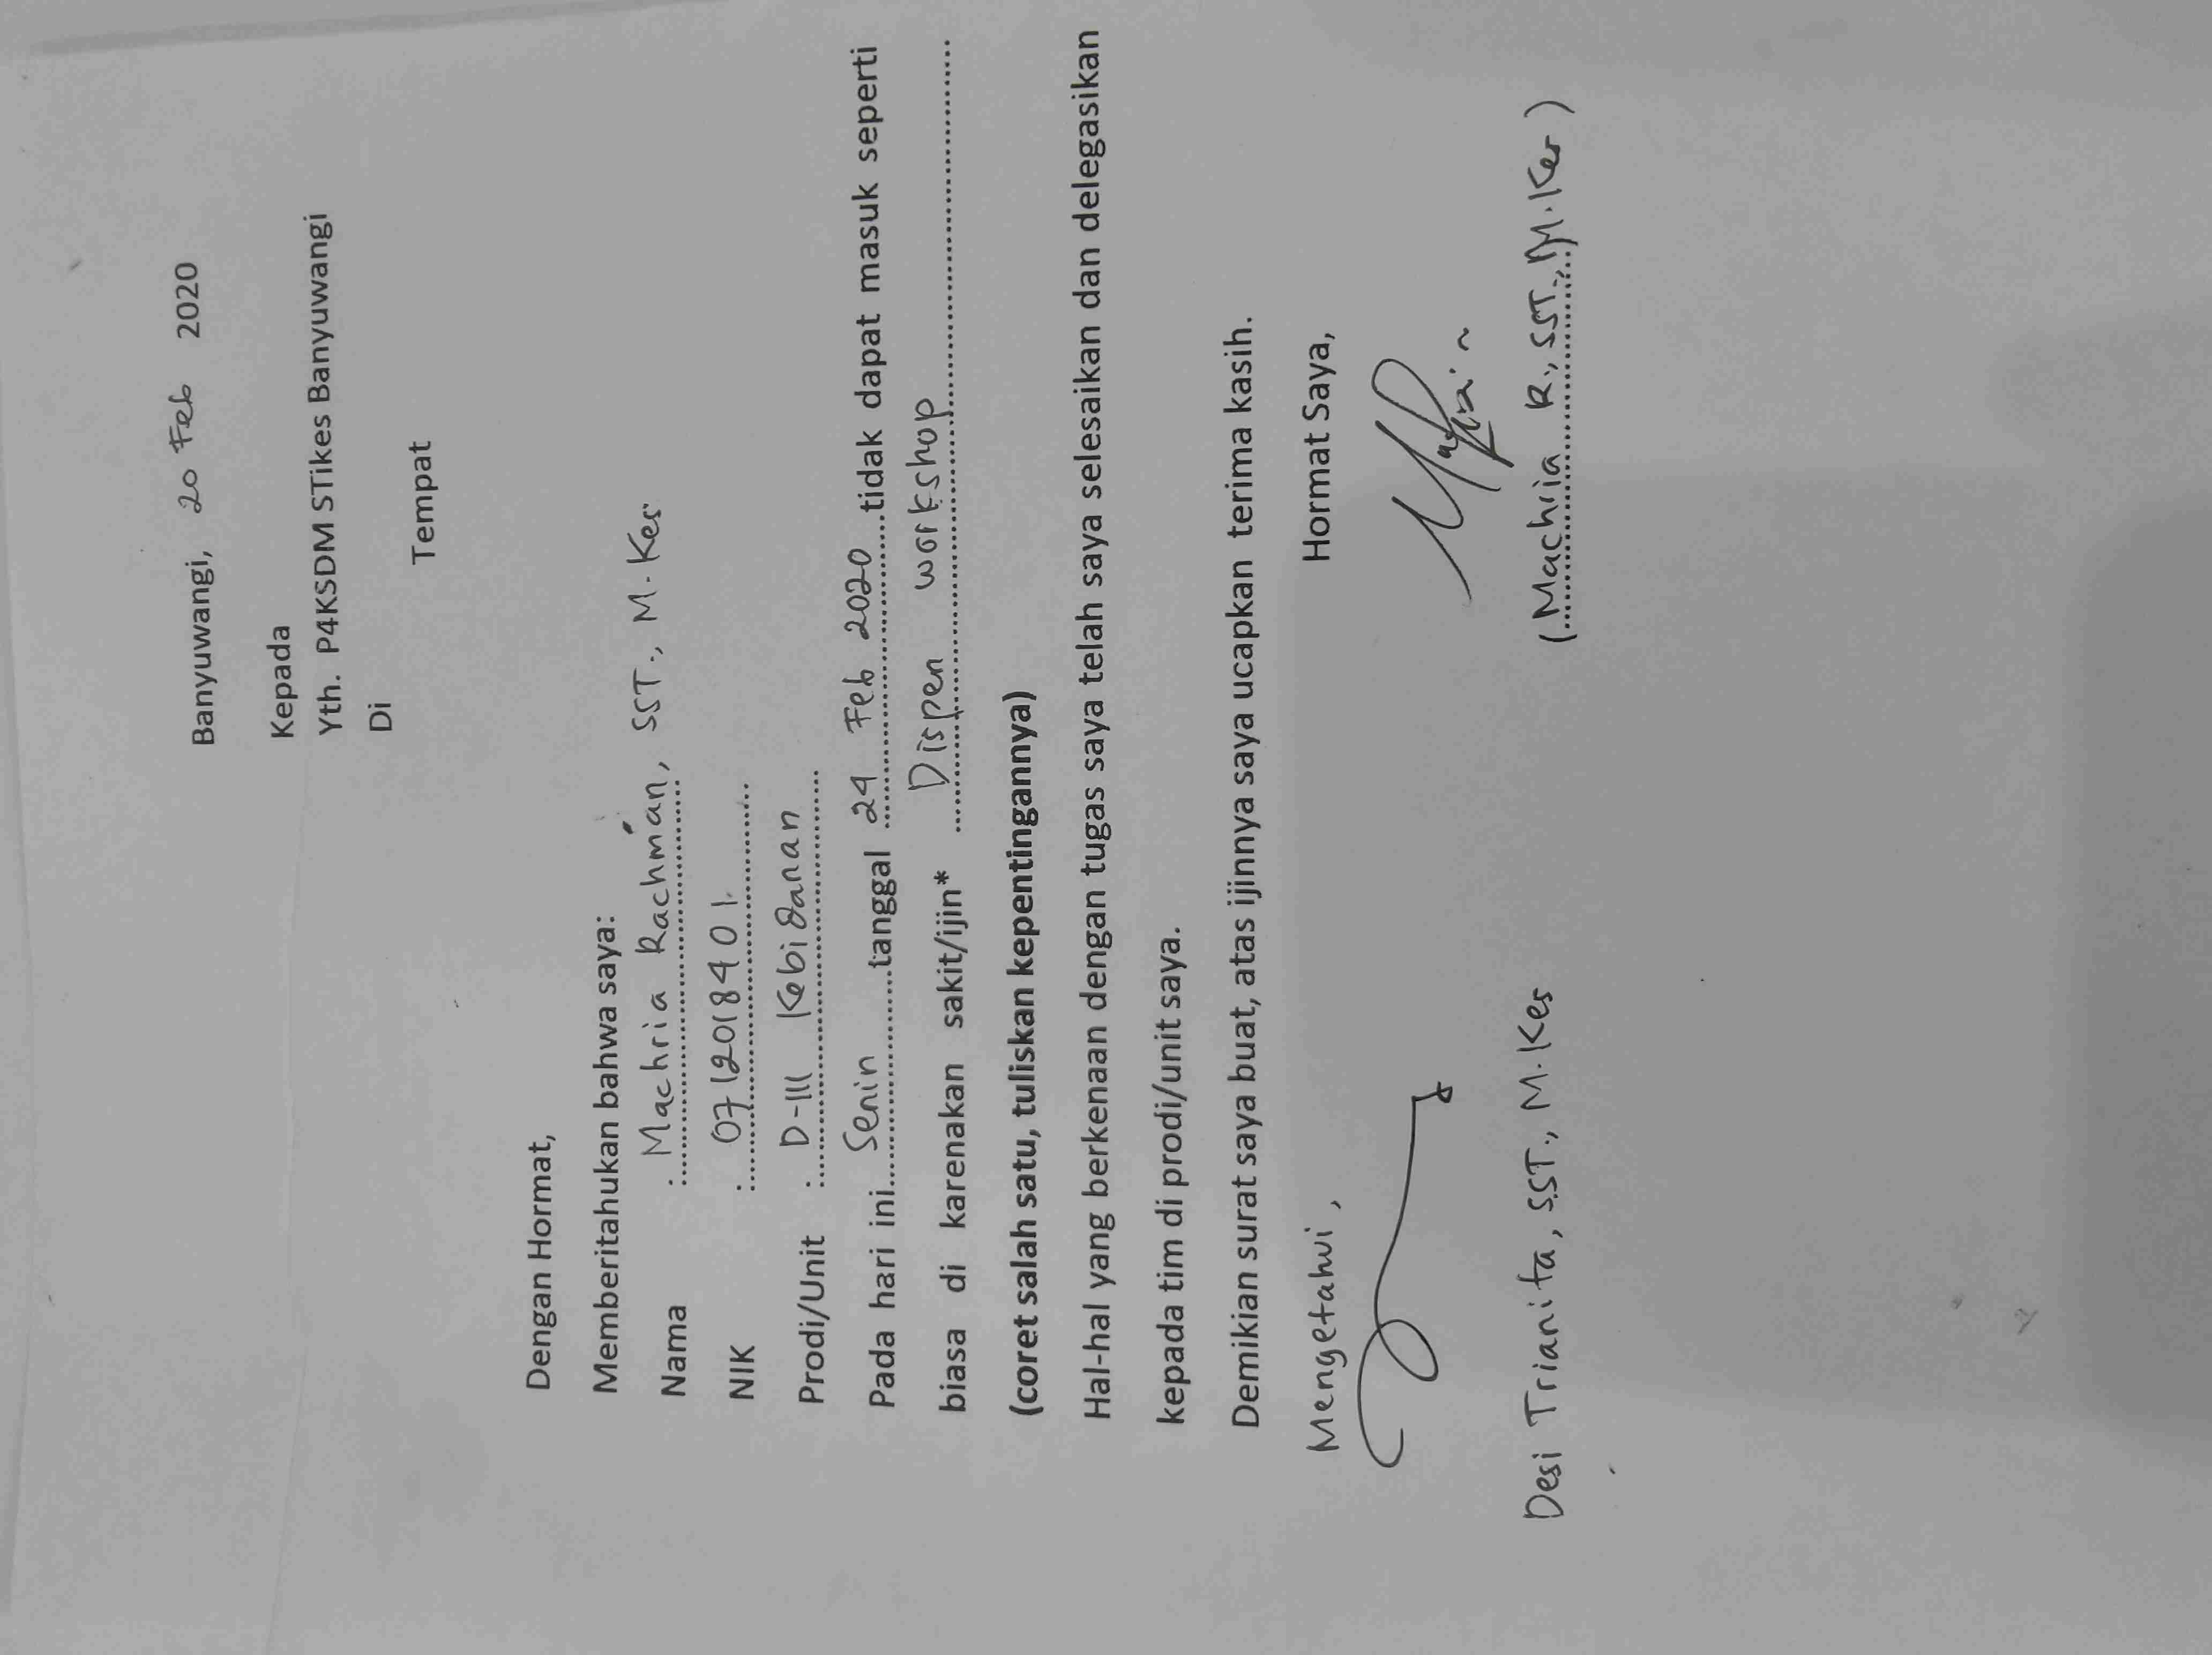 Banyuwangi, 20 Feb 2020
Kepada
Yth. P4KSDM STikes Banyuwangi
Di
Tempat
Dengan Hormat,
Memberitahukan bahwa saya:
Nama : Machria Rachman, SST., M.Kes
NIK : 0712018401
Prodi/Unit : D-III Kebidanan
Pada hari ini Senin tanggal 24 Feb 2020 tidak dapat masuk seperti
biasa di karenakan sakit/ijin* Dispen workshop
(coret salah satu, tuliskan kepentingannya)
Hal-hal yang berkenaan dengan tugas saya telah saya selesaikan dan delegasikan
kepada tim di prodi/unit saya.
Demikian surat saya buat, atas ijinnya saya ucapkan terima kasih.
Mengetahui, Hormat Saya,
Desi Trianita, SST., M.Kes (Machria R., SST., M.Kes)